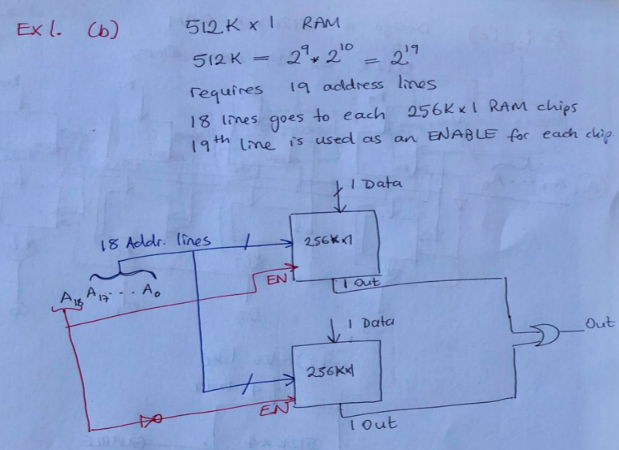 Ex 1. (b) 512K x 1 RAM
512K = 2⁹ * 2¹⁰ = 2¹⁹
requires 19 address lines
18 lines goes to each 256Kx1 RAM chips
19th line is used as an ENABLE for each chip
1 Data
18 Addr. lines
256Kx1
EN
1 out
A18 A17 . . . A0
1 Data
Out
256Kx1
EN
1 out